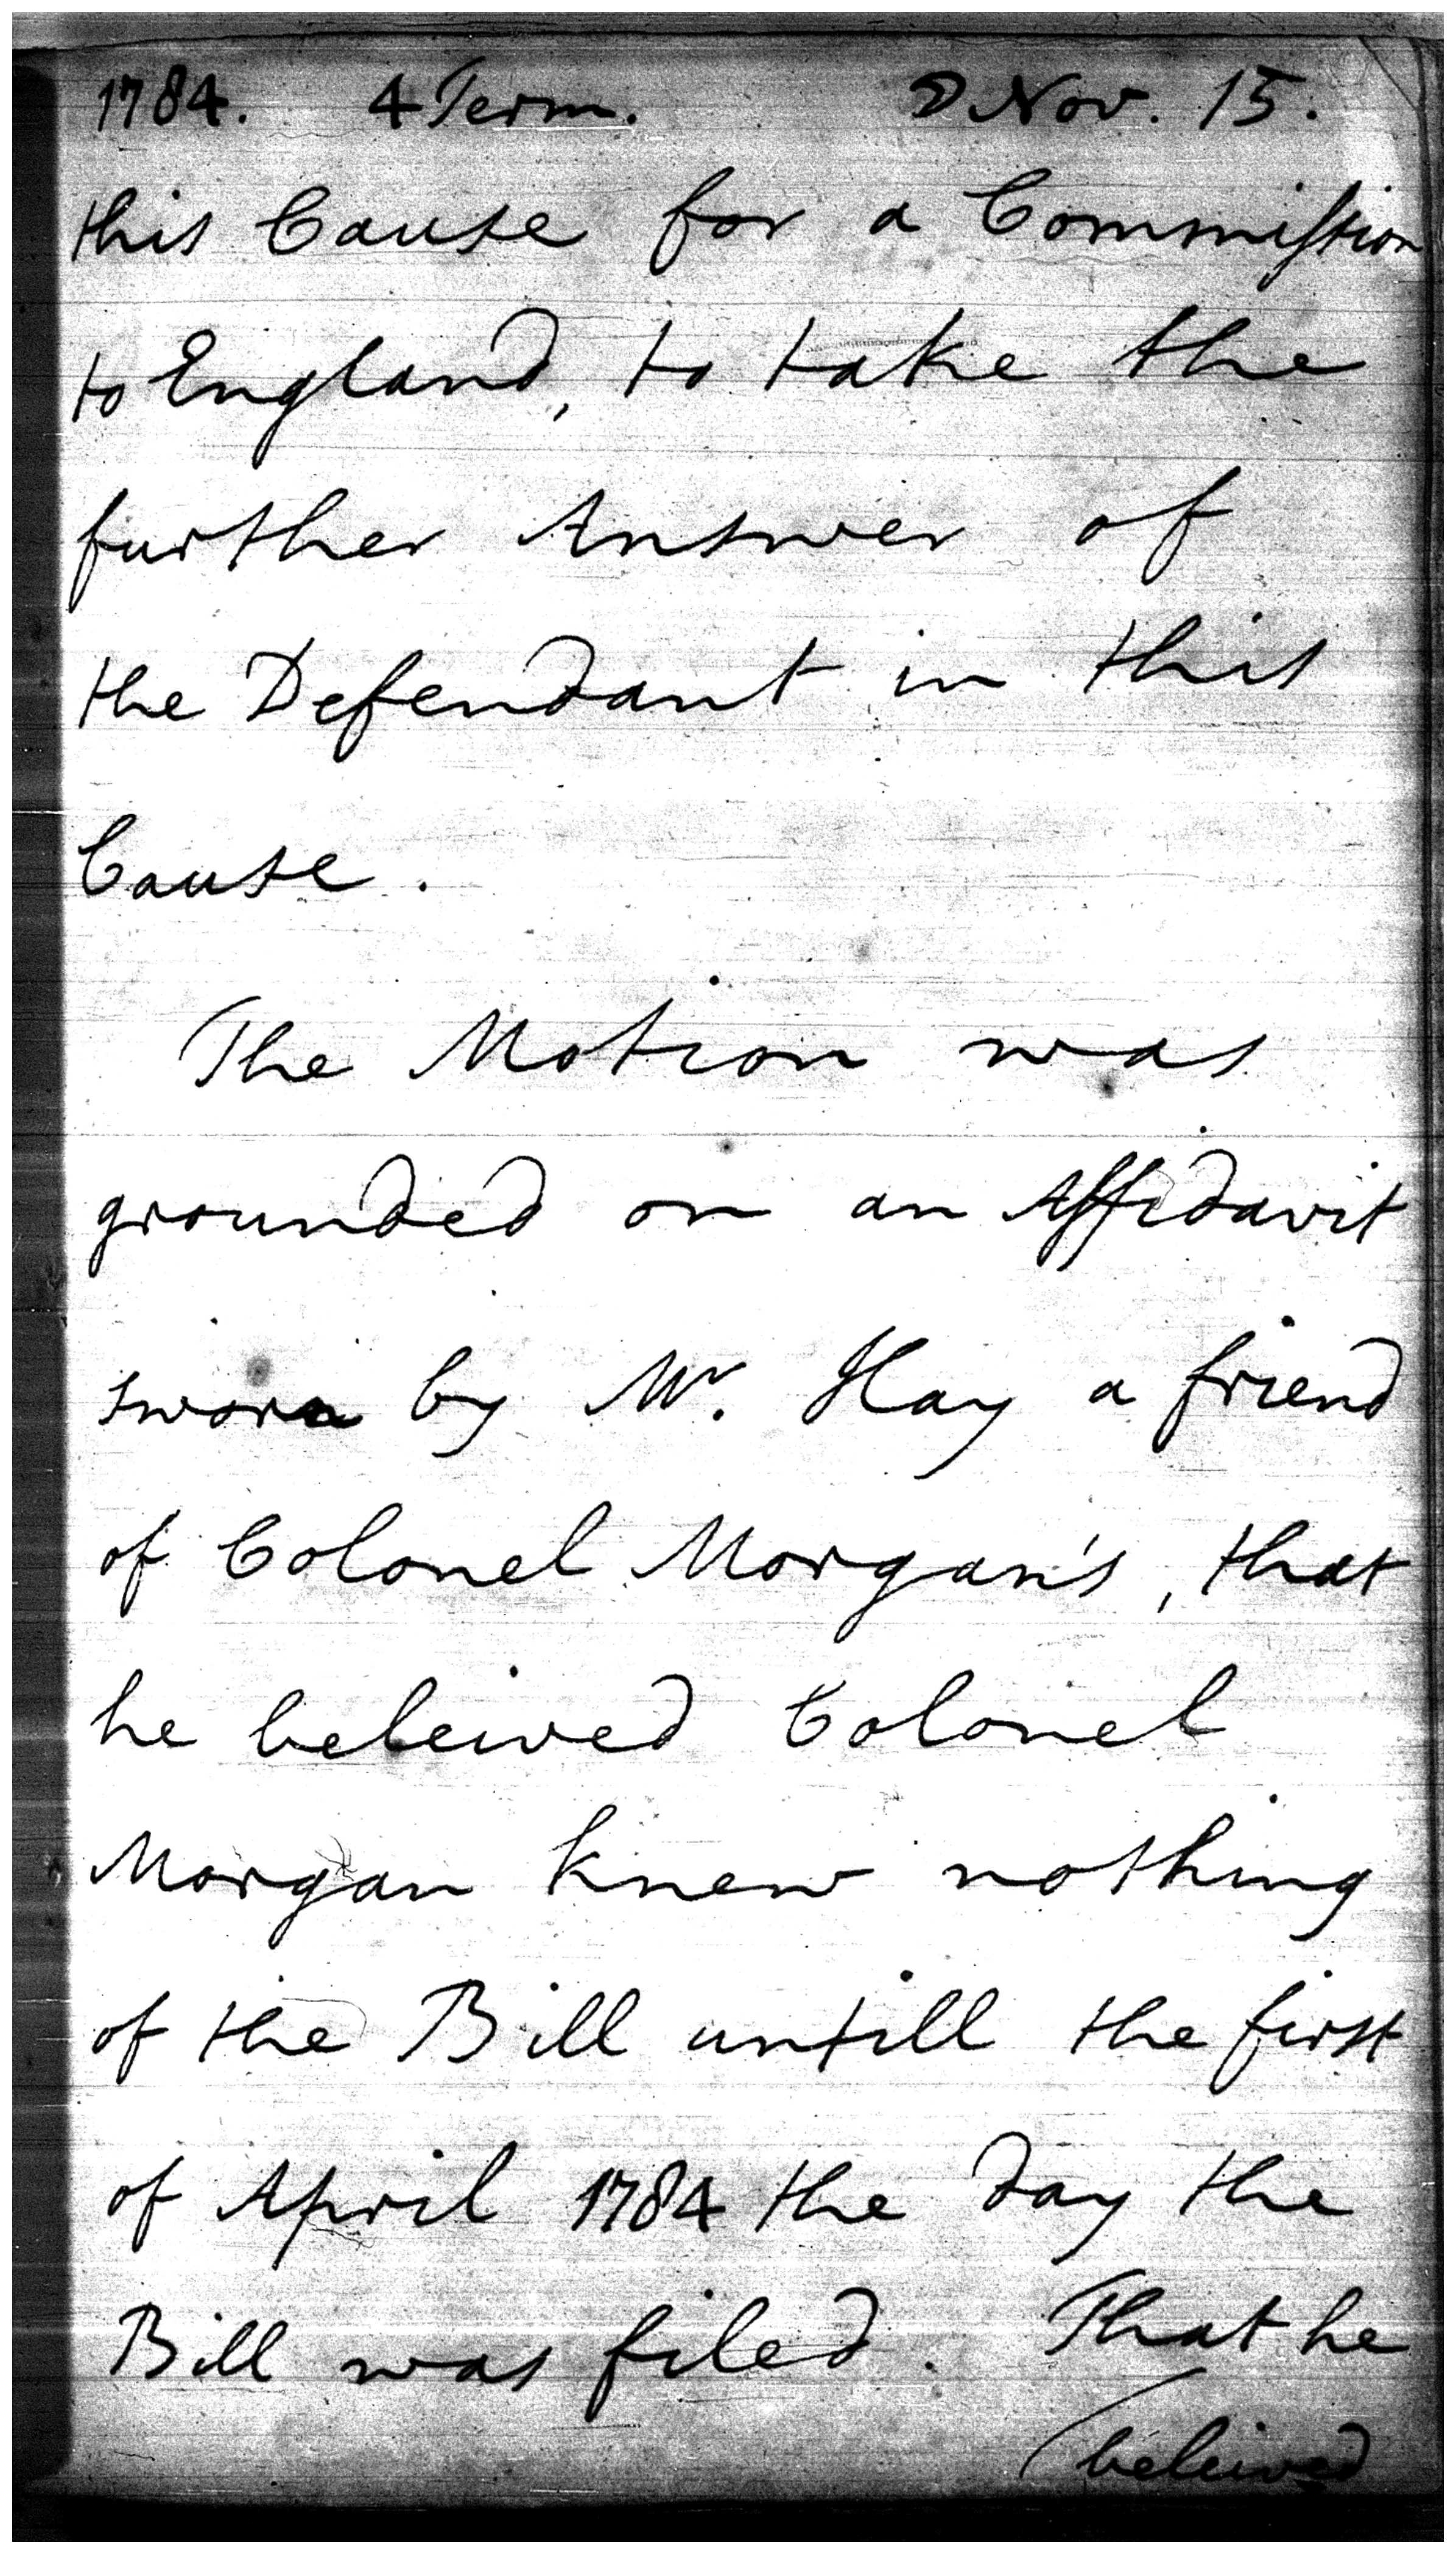 1784. 4 Term. ☽ Nov. 15.
this Cause for a Commiſsion
to England, to take the
further Answer of
the Defendant in this
Cause.
The Motion was
grounded on an Affidavit
sworn by Mr. Hay a friend
of Colonel Morgan's, that
he beleived Colonel
Morgan knew nothing
of the Bill untill the first
of April 1784 the day the
Bill was filed. That he
beleived